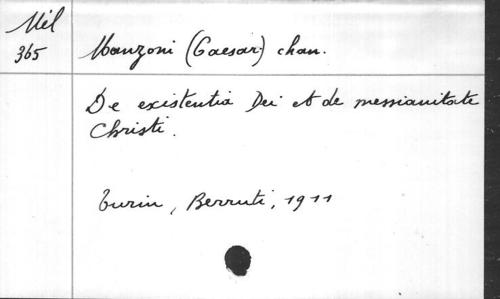 Mél
365
Manzoni (Caesar) chan.
De existentia Dei et de messianitate
Christi.
Turin, Berruti, 1911